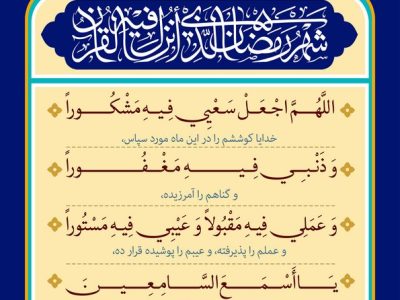 شهر رمضان الذي أنزل فيه القرآن
اللَّهُمَّ اجْعَلْ سَعْيِي فِيهِ مَشْكُوراً
خدایا کوششم را در این ماه مورد سپاس،
وَ ذَنْبِي فِيهِ مَغْفُوراً
و گناهم را آمرزیده،
وَ عَمَلِي فِيهِ مَقْبُولاً وَ عَيْبِي فِيهِ مَسْتُوراً
و عملم را پذیرفته، و عیبم را پوشیده قرار ده،
يَا أَسْمَعَ السَّامِعِينَ